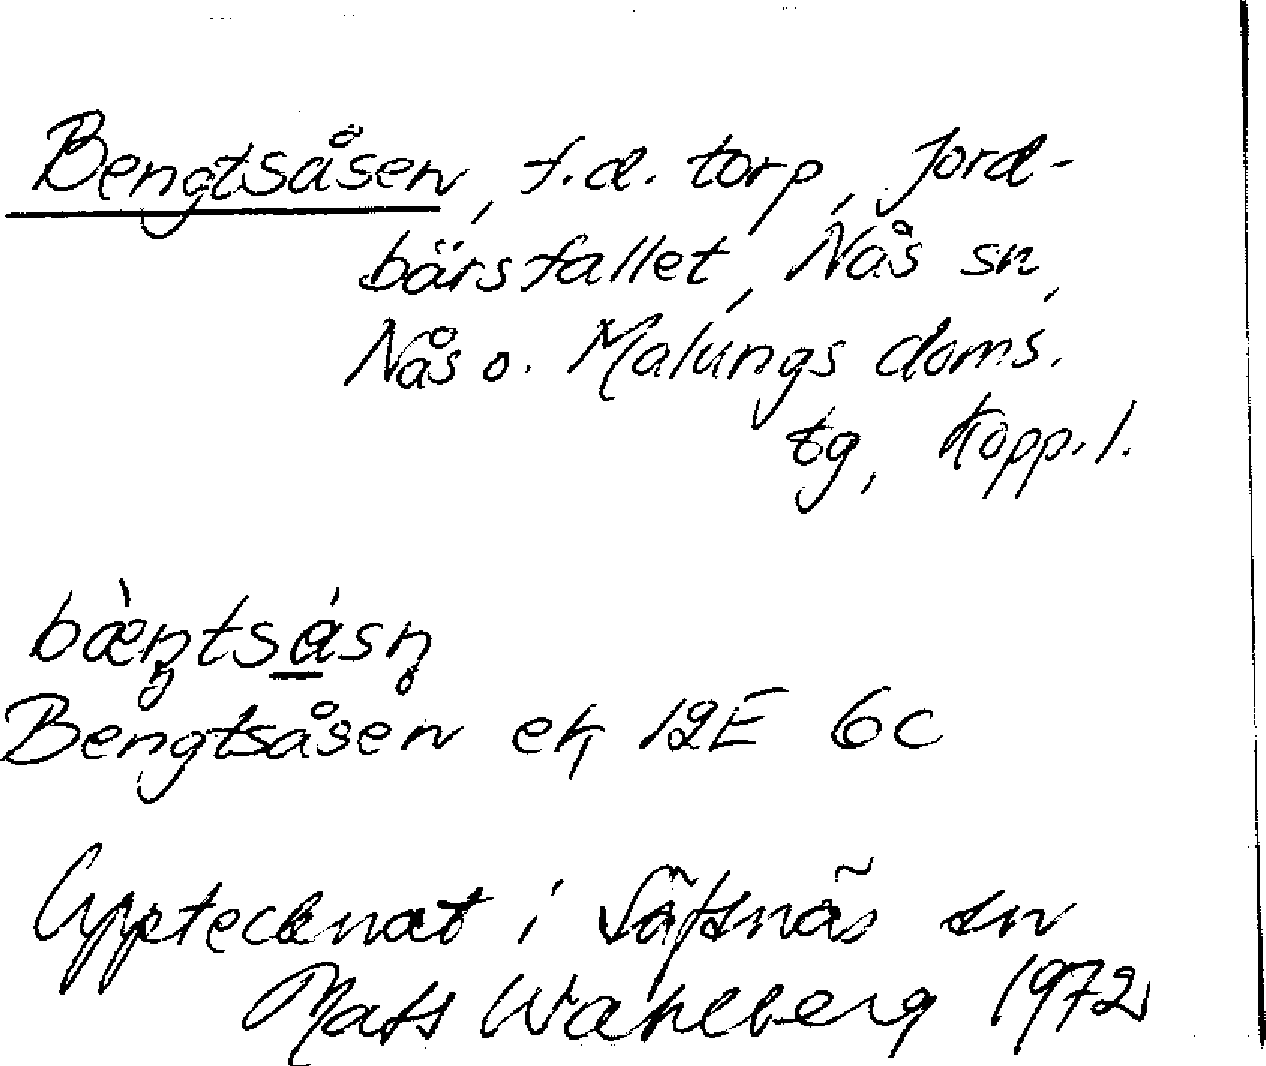 Bengtsåsen, f.d. torp, Jord-
bärsfallet, Nås sn,
Nås o. Malungs doms.
tg, Kopp. l.
bæ̀ŋtsásn̥
Bengtsåsen ek, 12E 6c
Upptecknat i Säfsnäs sn
Mats Wahlberg 1972